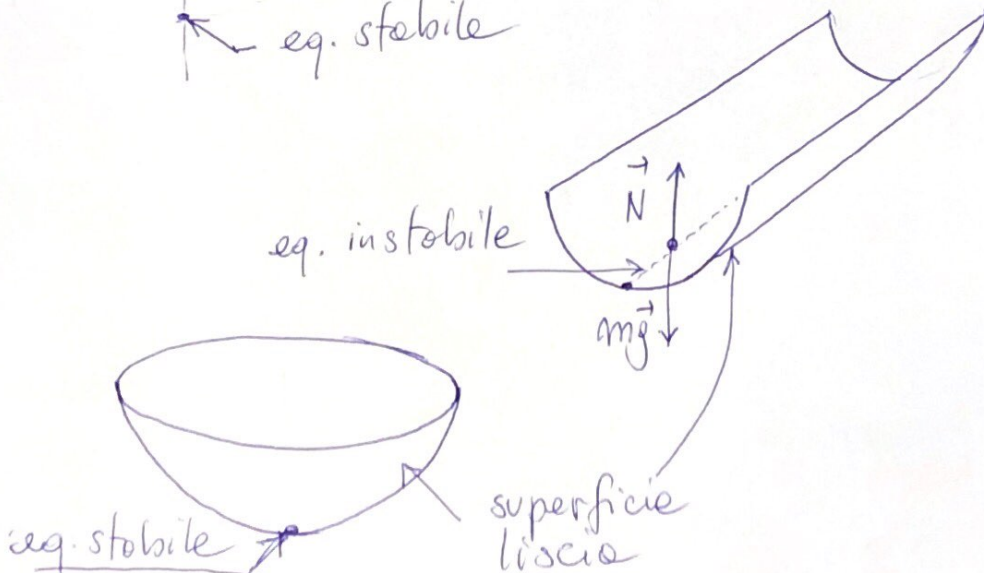 eq. stabile
N
eq. instabile
mg
eq. stabile
superficie
liscia